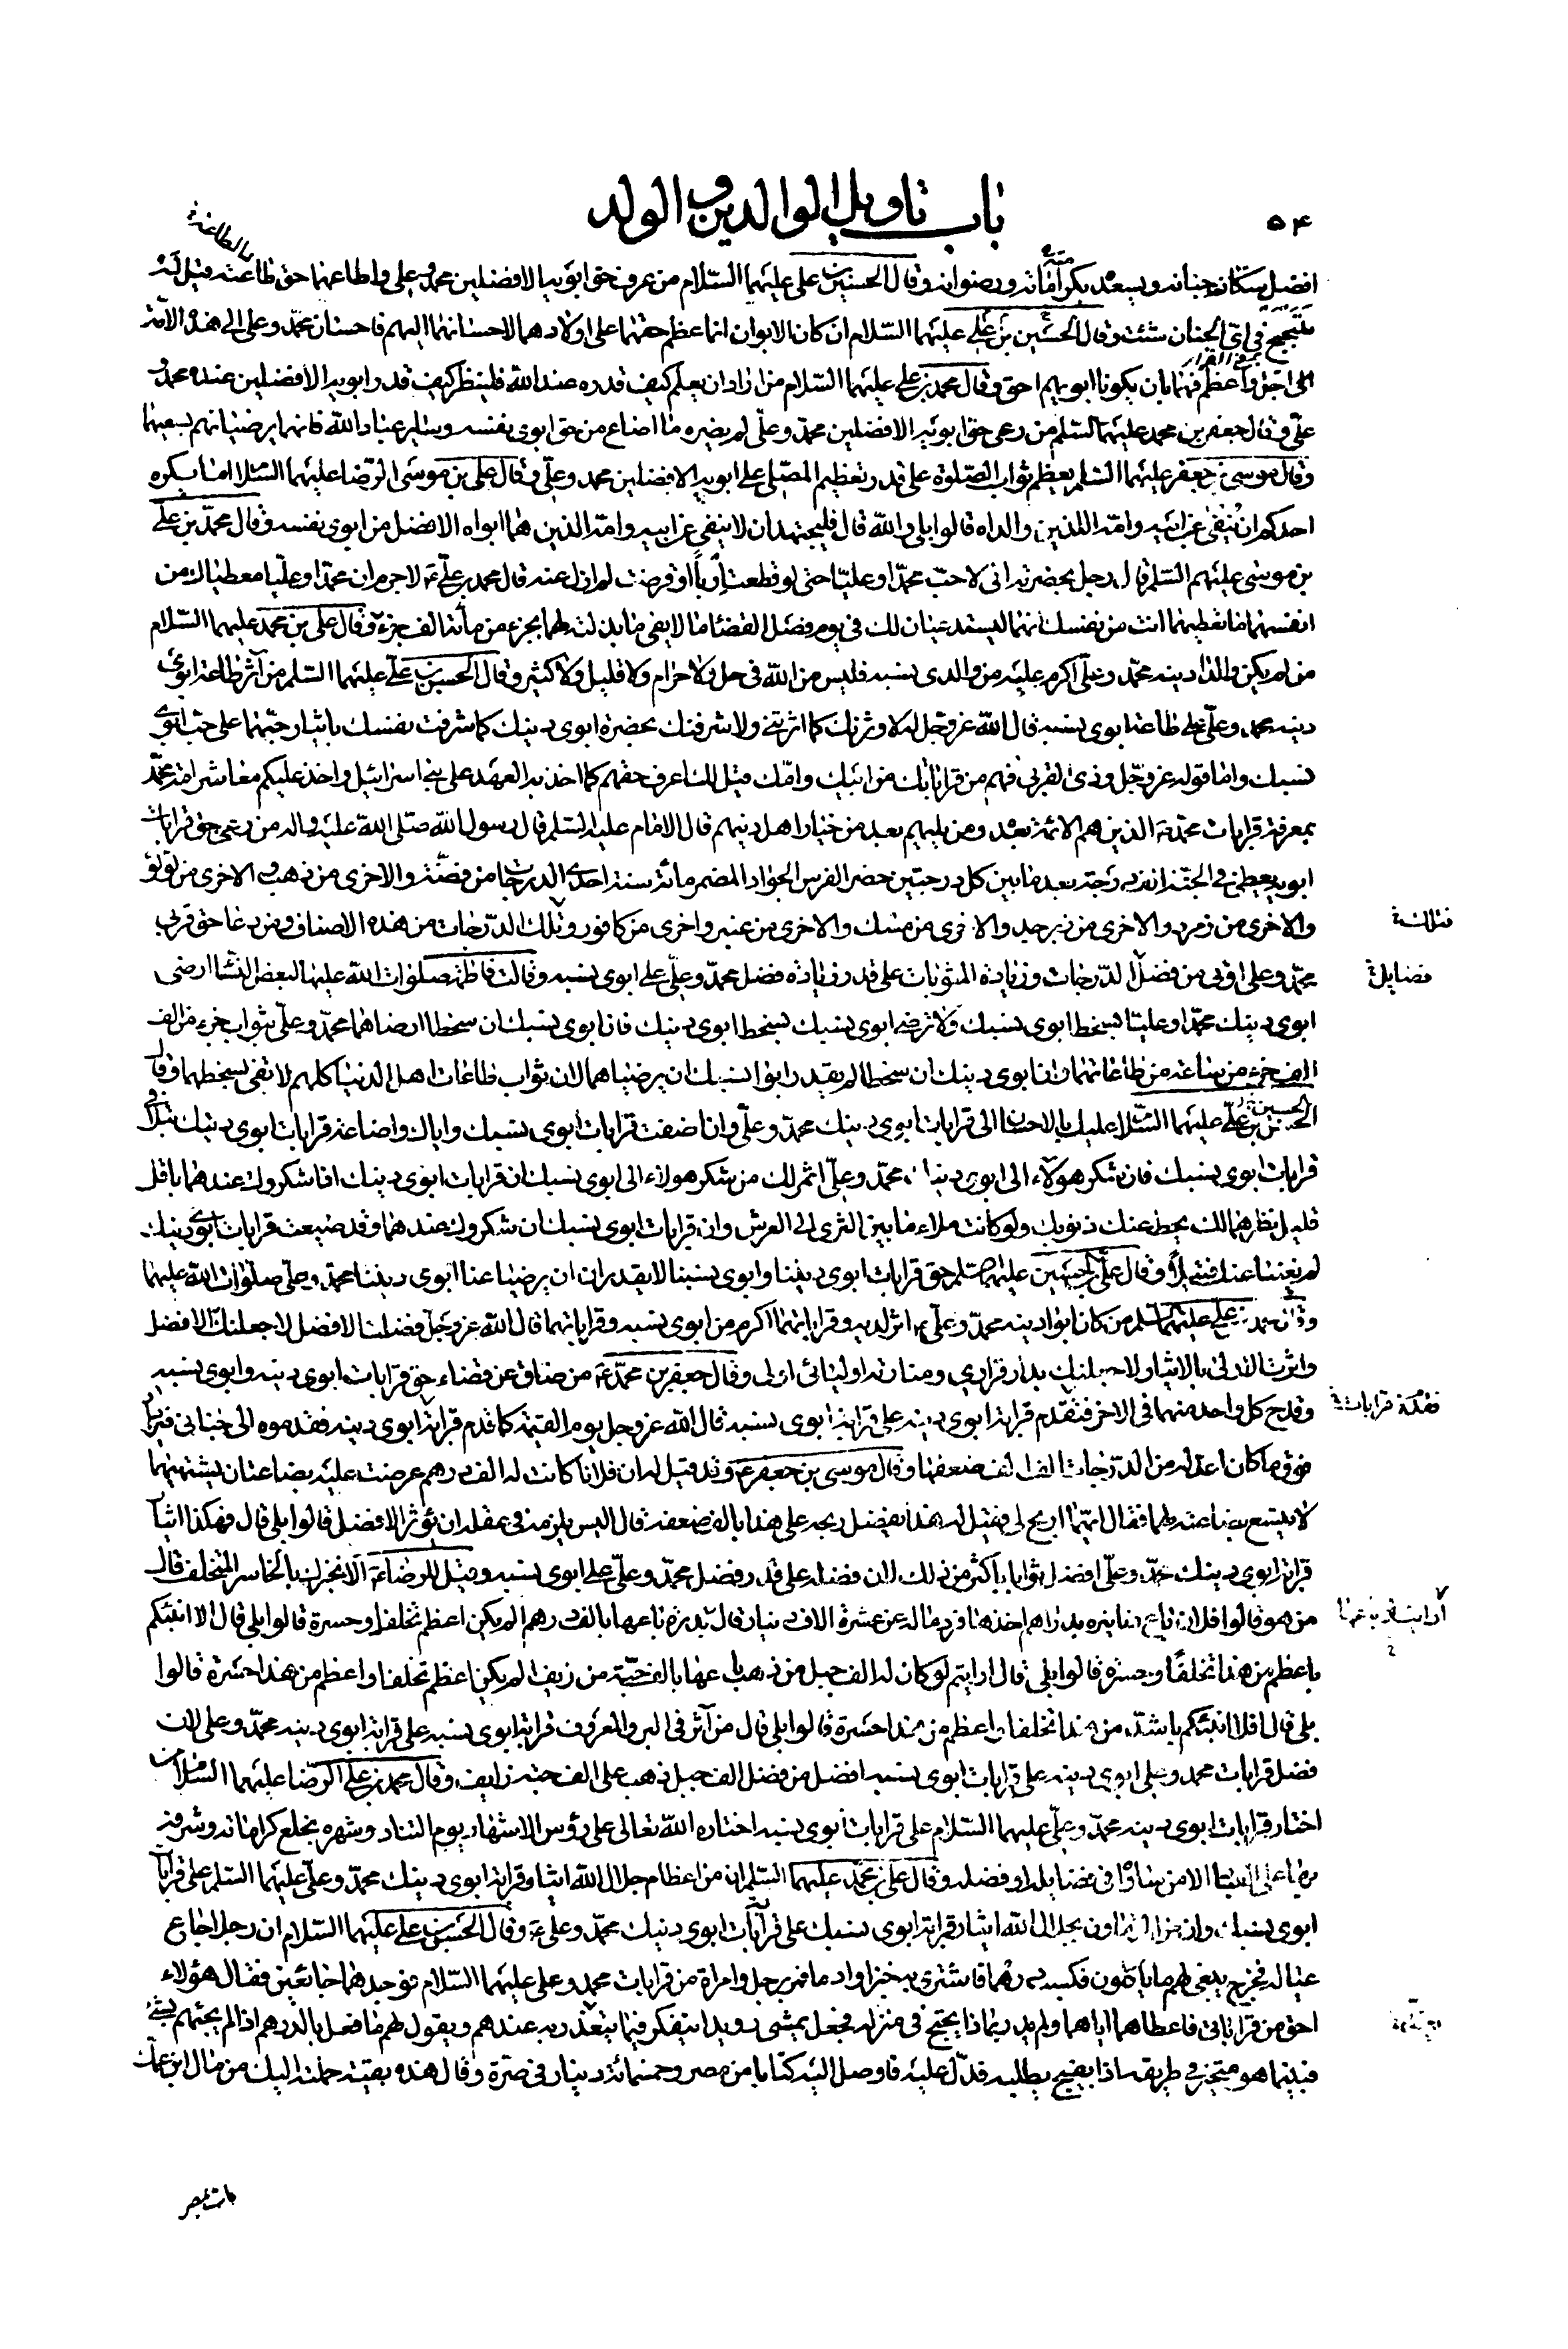 ۵۴
باب تاويل الوالدين و الولد
افضل سكان جنانه ويسعده بكراماته ورضوانه وقال الحسن بن علي عليهما السلام من عرف حق ابويه الافضلين محمد وعلي واطاعهما حق طاعته قيل له
تبحبح في اي الجنان شئت وقال الحسين بن علي عليهما السلام ان كان الابوان انما عظم حقهما على اولادهما لاحسانهما اليهم فاحسان محمد وعلي الى هذه الامة
اجل واعظم فهما بان يكونا ابويهم احق وقال محمد بن علي عليهما السلام من اراد ان يعلم كيف قدره عند الله فلينظر كيف قدر ابويه الافضلين عنده محمد و
علي وقال جعفر بن محمد عليهما السلم من رعى حق ابويه الافضلين محمد وعلي لم يضره ما اضاع من حق ابوي نفسه وساير عباد الله فانهما يرضيانهم بسعيهما
وقال موسى بن جعفر عليهما السلم يعظم ثواب الصلوة على قدر تعظيم المصلي على ابويه الافضلين محمد وعلي وقال علي بن موسى الرضا عليهما السلام اما يكره
احدكم ان ينفى عن ابيه وامه اللذين والداه قالوا بلى والله قال فليجتهد ان لا ينفى عن ابيه وامه الذين هما ابواه الافضل من ابوي نفسه وقال محمد بن علي
بن موسى عليهم السلم قال رجل بحضرته اني لاحب محمدا وعليا حتى لو قطعت اربا او قرضت لم ازل عنه قال محمد بن علي ع لا جرم ان محمدا وعليا معطياك من
انفسهما ما تعطيهما انت من نفسك انهما ليستدعيان لك في يوم فصل القضاء ما لا يفي ما بذلته لهما بجزء من مائة الف جزء وقال علي بن محمد عليهما السلام
من لم يكن والدا دينه محمد وعلي اكرم عليه من والدي نسبه فليس من الله في حل ولا حرام ولا قليل ولا كثير وقال الحسن بن علي عليهما السلم من آثر طاعة ابوي
دينه محمد وعلي على طاعة ابوي نسبه قال الله عز وجل له لاوثرنك كما اثرتني ولاشرفنك بحضرة ابوي دينك كما شرفت نفسك بايثار حبهما على حب ابوي
نسبك واما قوله عز وجل وذي القربى فهم من قراباتك من ابيك وامك قيل لك اعرف حقهم كما اخذ به العهد على بني اسرائيل واخذ عليكم معاشر امة محمد
بمعرفة قرابات محمد ص الذين هم الائمة بعده ومن يليهم بعد من خيار اهل دينهم قال الامام عليه السلم قال رسول الله صلى الله عليه واله من رعى حق قرابات
ابويه اعطي في الجنة الف درجة بعد ما بين كل درجتين حضر الفرس الجواد المضمر مائة سنة احدى الدرجات من فضة والاخرى من ذهب و الاخرى من لؤلؤ
والاخرى من زمرد والاخرى من زبرجد والاخرى من مسك والاخرى من عنبر واخرى من كافور وتلك الدرجات من هذه الاصناف ومن رعا حق قربى
محمد وعلي اوتي من فضل الدرجات وزيادة المثوبات على قدر زيادة فضل محمد وعلي على ابوي نسبه وقالت فاطمة صلوات الله عليها لبعض النساء ارضي
ابوي دينك محمدا وعليا بسخط ابوي نسبك ولا ترضي ابوي نسبك بسخط ابوي دينك فان ابوي نسبك ان سخطا ارضاهما محمد وعلي بثواب جزء من الف
الف جزء من ساعة من طاعاتهما وان ابوي دينك ان سخطا لم يقدر ابوا نسبك ان يرضياهما لان ثواب طاعات اهل الدنيا كلهم لا تفي بسخطهما وقال
الحسن بن علي عليهما السلام عليك بالاحسان الى قرابات ابوي دينك محمد وعلي وان اضعت قرابات ابوي نسبك واياك واضاعة قرابات ابوي دينك بتلافي
قرابات ابوي نسبك فان شكر هولاء الى ابوي دينك محمد وعلي اثمر لك من شكر هولاء الى ابوي نسبك ان قرابات ابوي دينك اذا شكروك عندهما باقل
قليل نظرهما لك يحط عنك ذنوبك ولو كانت ملاء ما بين الثرى الى العرش وان قرابات ابوي نسبك ان شكروك عندهما وقد ضيعت قرابات ابوي دينك
لم يغنيا عنك فتيلا وقال علي بن الحسين عليهما السلم حق قرابات ابوي ديننا وابوي نسبنا لا يقدران ان يرضيا عنا ابوي ديننا محمد وعلي صلوات الله عليهما
وقال محمد بن علي عليهما السلم من كان ابوا دينه محمد وعلي ع اثر لديه وقراباتهما اكرم من ابوي نسبه وقراباتهما قال الله عز وجل فضلت الافضل لاجعلنك الافضل
واثرت الاولى بالايثار لاجعلنك بدار قراري ومنادمة اوليائي اولى وقال جعفر بن محمد ع من ضاق عن قضاء حق قرابات ابوي دينه وابوي نسبه
وقدح كل واحد منهما في الاخر فقدم قرابة ابوي دينه على قرابة ابوي نسبه قال الله عز وجل يوم القيمة كما قدم قرابة ابوي دينه فقدموه الى جناني فيزداد
فوق ما كان اعد له من الدرجات الف الف ضعفها وقال موسى بن جعفر ع وقد قيل له ان فلانا كانت له الف درهم عرضت عليه بضاعتان يشتهيهما
لا يتسع بضاعته لهما فقال ايهما اربح لي فقيل له هذا يفضل ربحه على هذا بالف ضعف قال اليس يلزمه في عقله ان يؤثر الافضل قالوا بلى قال فهكذا ايثار
قرابة ابوي دينك محمد وعلي افضل ثوابا باكثر من ذلك لان فضله على قدر فضل محمد وعلي على ابوي نسبه وقيل للرضا ع الا نخبرك بالخاسر المتخلف قال
من هو قالوا فلان باع دنانيره بدراهم اخذها فرد ماله عن عشرة الاف دينار قال بدرة باعها بالف درهم الم يكن اعظم تخلفا وحسرة قالوا بلى قال الا انبئكم
باعظم من هذا تخلفا وحسرة قالوا بلى قال ارايتم لو كان له الف جبل من ذهب باعها بالف حبة من زيف الم يكن اعظم تخلفا واعظم من هذا حسرة قالوا
بلى قال افلا انبئكم باشد من هذا تخلفا واعظم من هذا حسرة قالوا بلى قال من آثر في البر والمعروف قرابة ابوي نسبه على قرابة ابوي دينه محمد وعلي لان
فضل قرابات محمد وعلي ابوي دينه على قرابات ابوي نسبه افضل من فضل الف جبل ذهب على الف حبة زايف وقال محمد بن علي الرضا عليهما السلام من
اختار قرابات ابوي دينه محمد وعلي عليهما السلام على قرابات ابوي نسبه اختاره الله تعالى على رؤس الاشهاد يوم التناد وشهره بخلع كراماته وشرفه
بها على العباد الا من ساواه في فضايله او فضله وقال علي بن محمد عليهما السلم ان من اعظام جلال الله ايثار قرابة ابوي دينك محمد وعلي عليهما السلم على قرابات
ابوي نسبك وان من التهاون بجلال الله ايثار قرابة ابوي نسبك على قرابات ابوي دينك محمد وعلي ع وقال الحسن بن علي عليهما السلام ان رجلا جاع
عياله فخرج يبغي لهم ما ياكلون فكسب درهما فاشترى به خبزا واداما فمر برجل وامراة من قرابات محمد وعلي عليهما السلام فوجدهما جائعين فقال هؤلاء
احق من قراباتي فاعطاهما اياهما ولم يدر بماذا يحتج في منزله فجعل يمشي رويدا يتفكر فيما يتعذر به عندهم ويقول لهم ما فعل بالدرهم اذا لم يجئهم بشيء
فبينما هو متحير في طريقه اذا بفيج يطلبه فدل عليه فاوصل اليه كتابا من مصر وخمسمائة دينار في صرة وقال هذه بقية حملته اليك من مال ابن عمك
مات بمصر